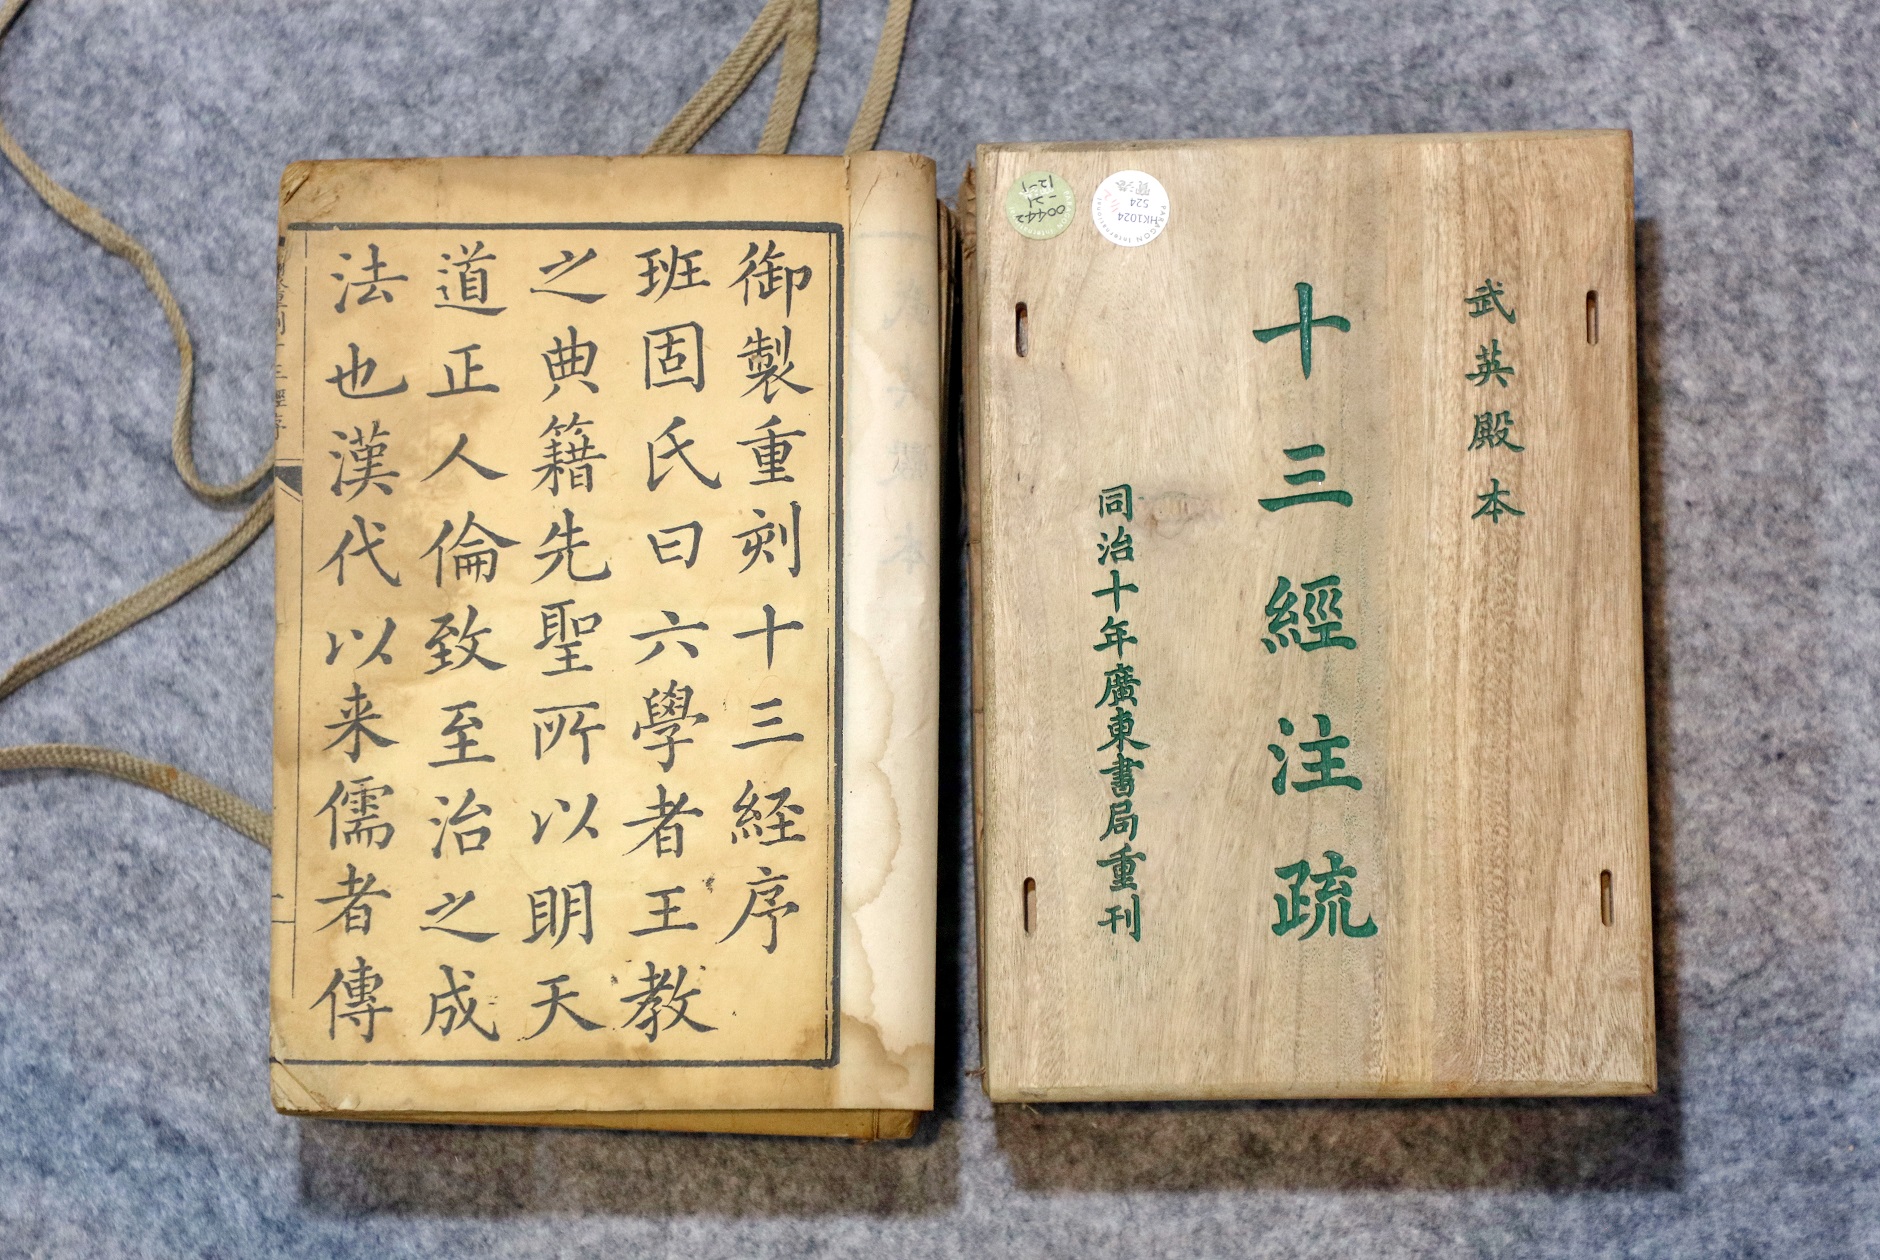 御製重刻十三経序
班固氏曰六學者王教
之典籍先聖所以明天
道正人倫致至治之成
法也漢代以来儒者傳
武英殿本
十三經注疏
同治十年廣東書局重刊
00442
-21
12-1
PARAGON International
HK1024
524